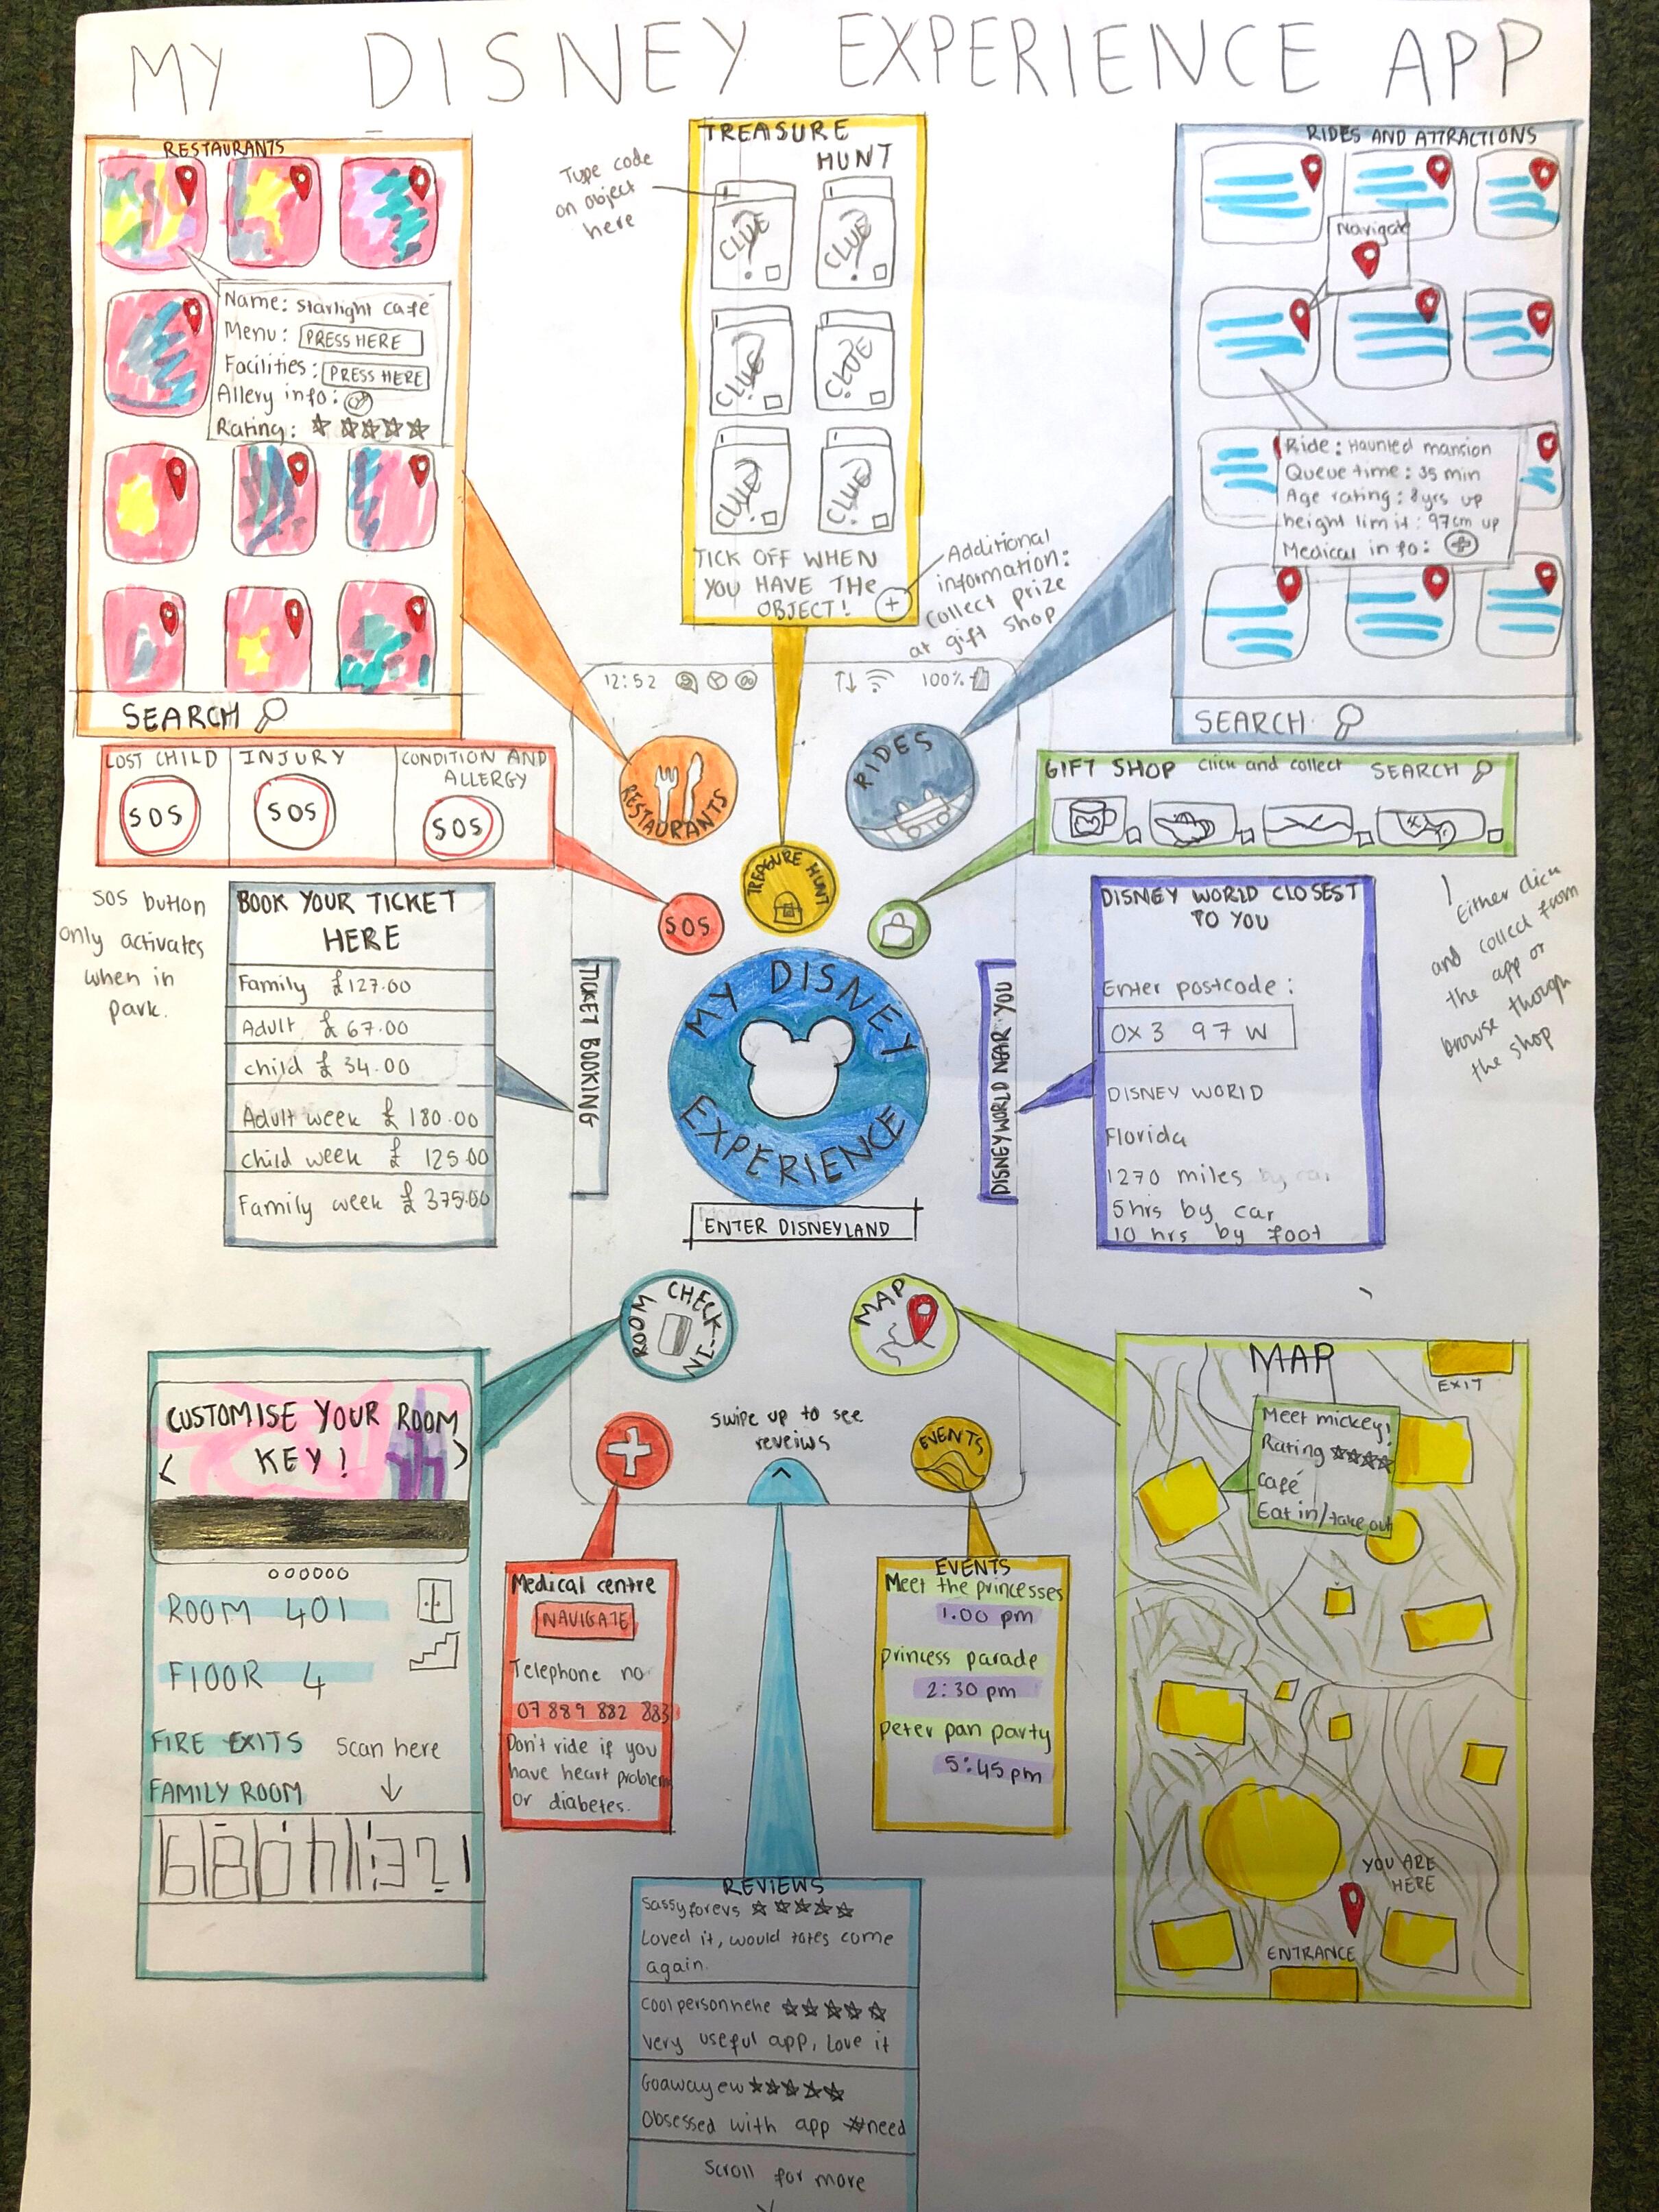 MY DISNEY EXPERIENCE APP
RESTAURANTS
Name: Starlight café
Menu: PRESS HERE
Facilities: PRESS HERE
Allery info:
Rating:
SEARCH
Type code
on object
here
TREASURE
HUNT
CLUE
CLUE
CLUE
CLUE
CLUE
CLUE
TICK OFF WHEN
YOU HAVE THE
OBJECT! +
Additional
information:
Collect prize
at gift shop
RIDES AND ATTRACTIONS
Navigate
Ride: Haunted mansion
Queue time: 35 min
Age rating: 8yrs up
height limit: 97cm up
Medical info:
SEARCH
12:52
100%
RESTAURANTS
RIDES
TREASURE HUNT
SOS
LOST CHILD
SOS
INJURY
SOS
CONDITION AND
ALLERGY
SOS
SOS button
only activates
when in
park.
GIFT SHOP Click and collect SEARCH
Either click
and collect from
the app or
browse though
the shop
BOOK YOUR TICKET
HERE
Family £127.00
Adult £67.00
child £34.00
Adult week £180.00
child week £125.00
Family week £375.00
TICKET BOOKING
MY DISNEY
EXPERIENCE
ENTER DISNEYLAND
DISNEYWORLD NEAR YOU
DISNEY WORLD CLOSEST
TO YOU
Enter postcode:
OX3 97W
DISNEY WORLD
Florida
1270 miles by car
5hrs by car
10 hrs by foot
ROOM CHECK-IN
MAP
swipe up to see
reveiws
EVENTS
CUSTOMISE YOUR ROOM
< KEY! >
ROOM 401
FLOOR 4
FIRE EXITS scan here
FAMILY ROOM
Medical centre
NAVIGATE
Telephone no
07889 882 883
Don't ride if you
have heart problem
or diabetes.
EVENTS
Meet the princesses
1.00 pm
princess parade
2:30 pm
peter pan party
5:45 pm
MAP
EXIT
Meet mickey!
Rating
café
Eat in/take out
YOU ARE
HERE
ENTRANCE
REVIEWS
Sassyforevs
Loved it, would totes come
again.
coolpersonhehe
very useful app, love it
Goawayew
Obsessed with app #need
Scroll for more